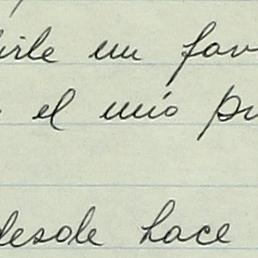 irle un fav
el mío pu
desde hace